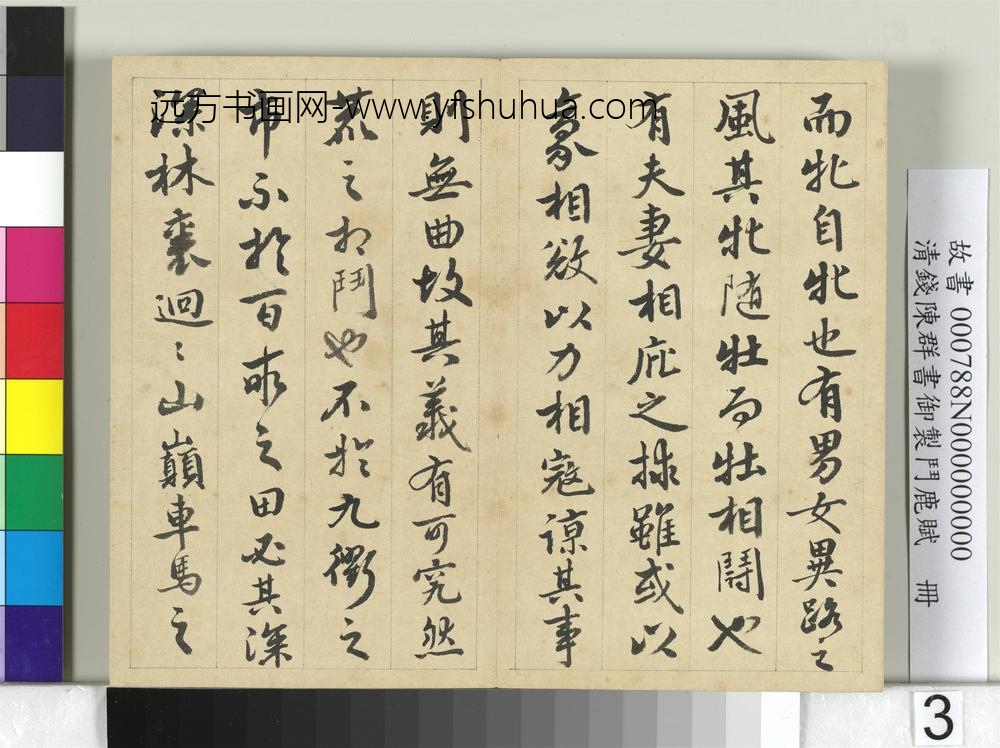 而牝自牝也有男女異路之
風其牝隨牡而牡相鬪也
有夫妻相庇之操雖或以
象相敓以力相寇諒其事
則無曲故其義有可究然
茲之相鬥也不於九衢之
市不於百畝之田必其深
深林裏迴〻山巔車馬之
远方书画网-www.yfshuhua.com
故書 000788N000000000
清錢陳群書御製鬥鹿賦 冊
3